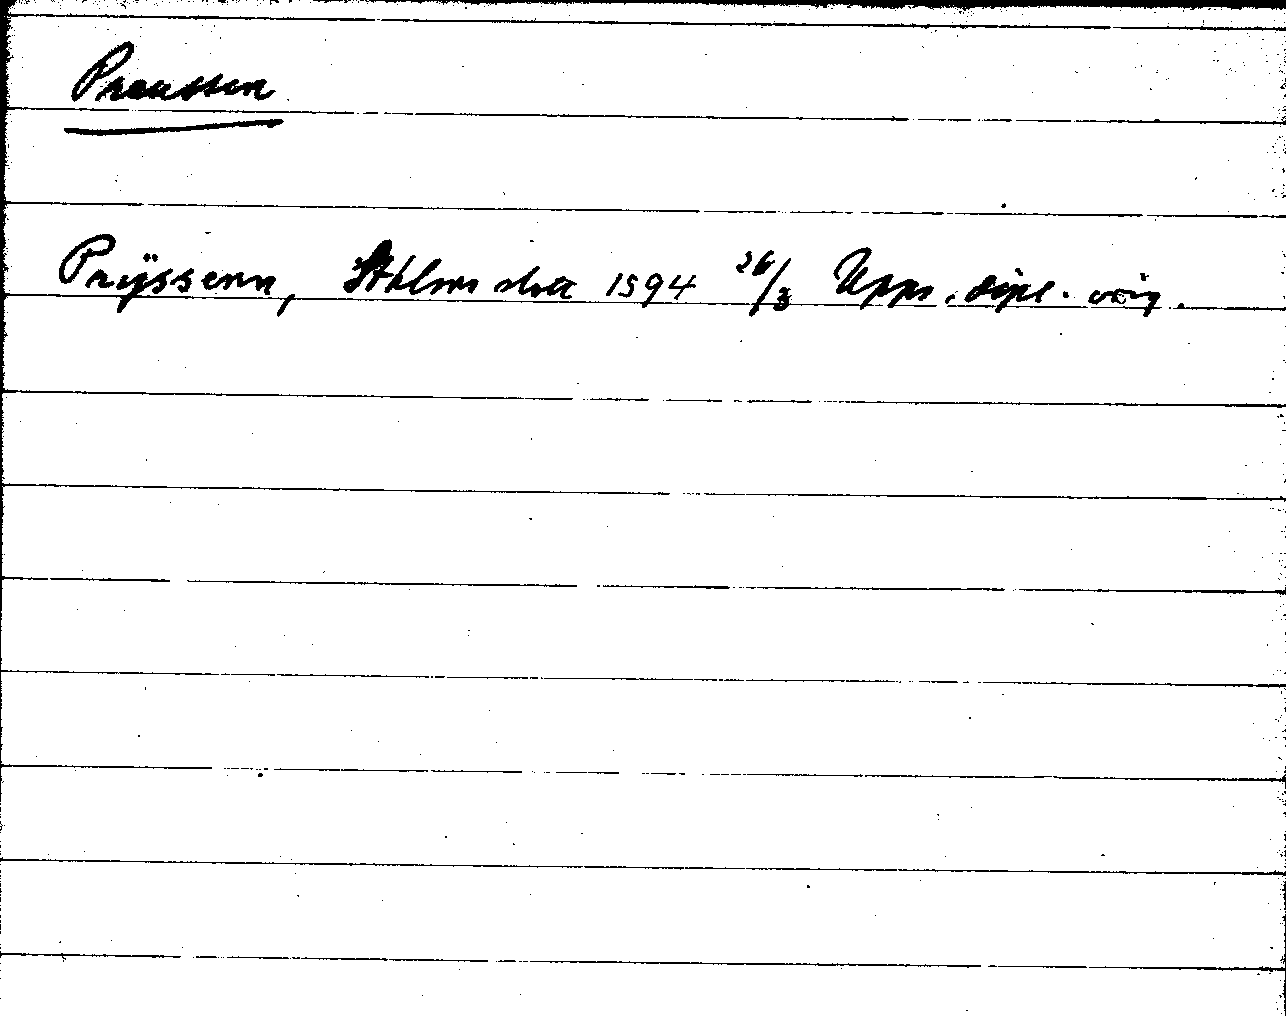 Preussen
Prÿssenn, Sthlms slott 1594 26/3 Upps. dipl. orig.